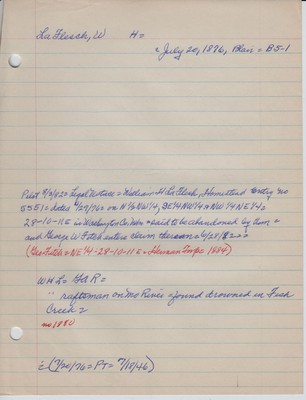 La Flesch, W    H=
July 20, 1876, Blair = B5-1
Pilot 8/3/82 Legal Notice = William H La Flesh, Homestead Entry no
5551 = dated 1/29/76 on N½NW¼, SE¼NW¼ + NW¼NE¼ =
28-10-11E in Washington Co, Nebr = said to be abandoned by him, =
and George W Fitch enters claim thereon = 6/28/82 = =
(Geo Fitch = NE¼-28-10-11E = Herman Twp = 1884)
W H L = G a R =
" raftsman on Mo River = found drowned in Fish
Creek =
no 1880
(7/20/76 = PT = 7/18/46)